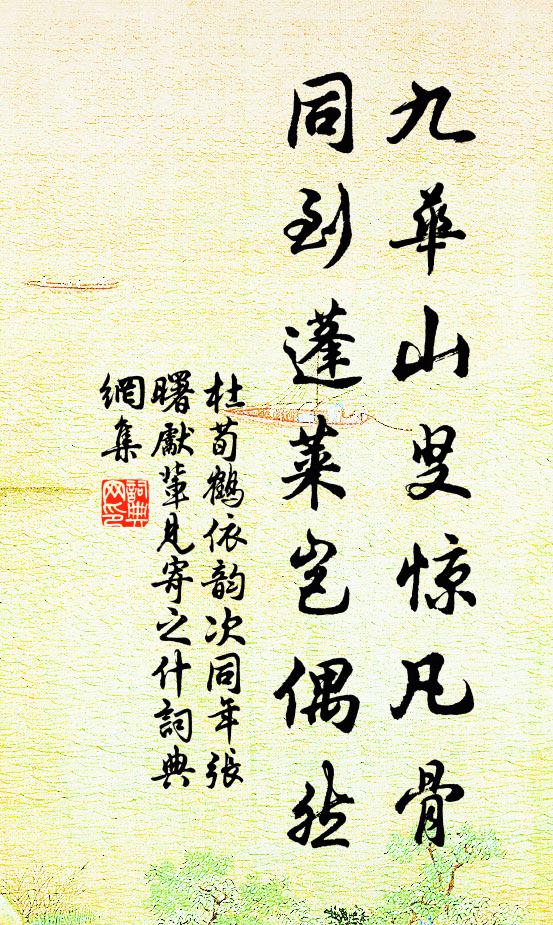 九華山叟惊凡骨
同到蓬萊岂偶然
杜荀鶴依韵次同年張
曙獻輩見寄之什詞典
網集
詞典
网印